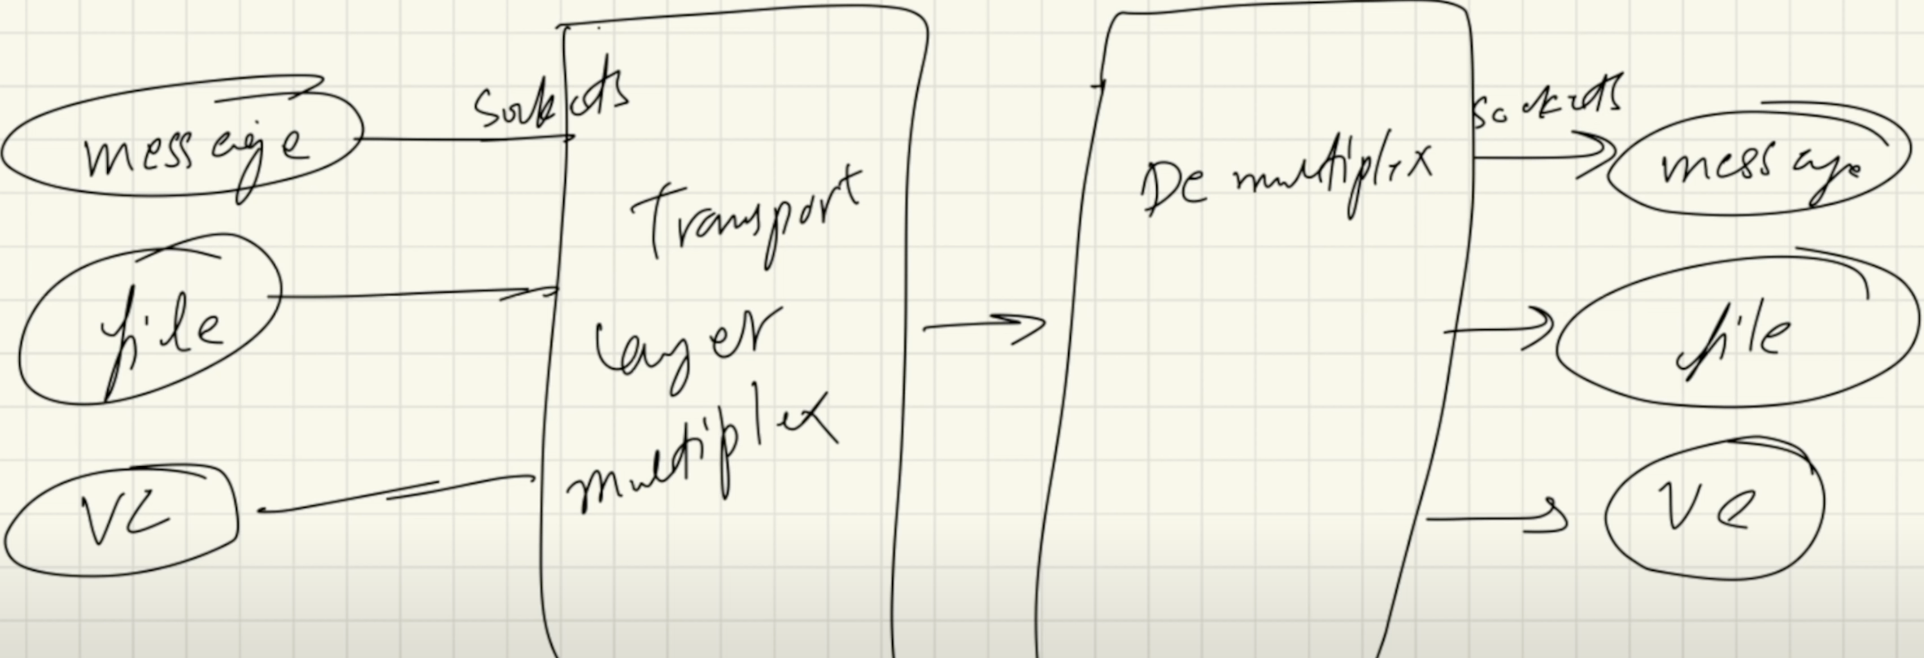 message
file
VC
Sockets
Transport
layer
multiplex
De multiplex
Sockets
message
file
VC